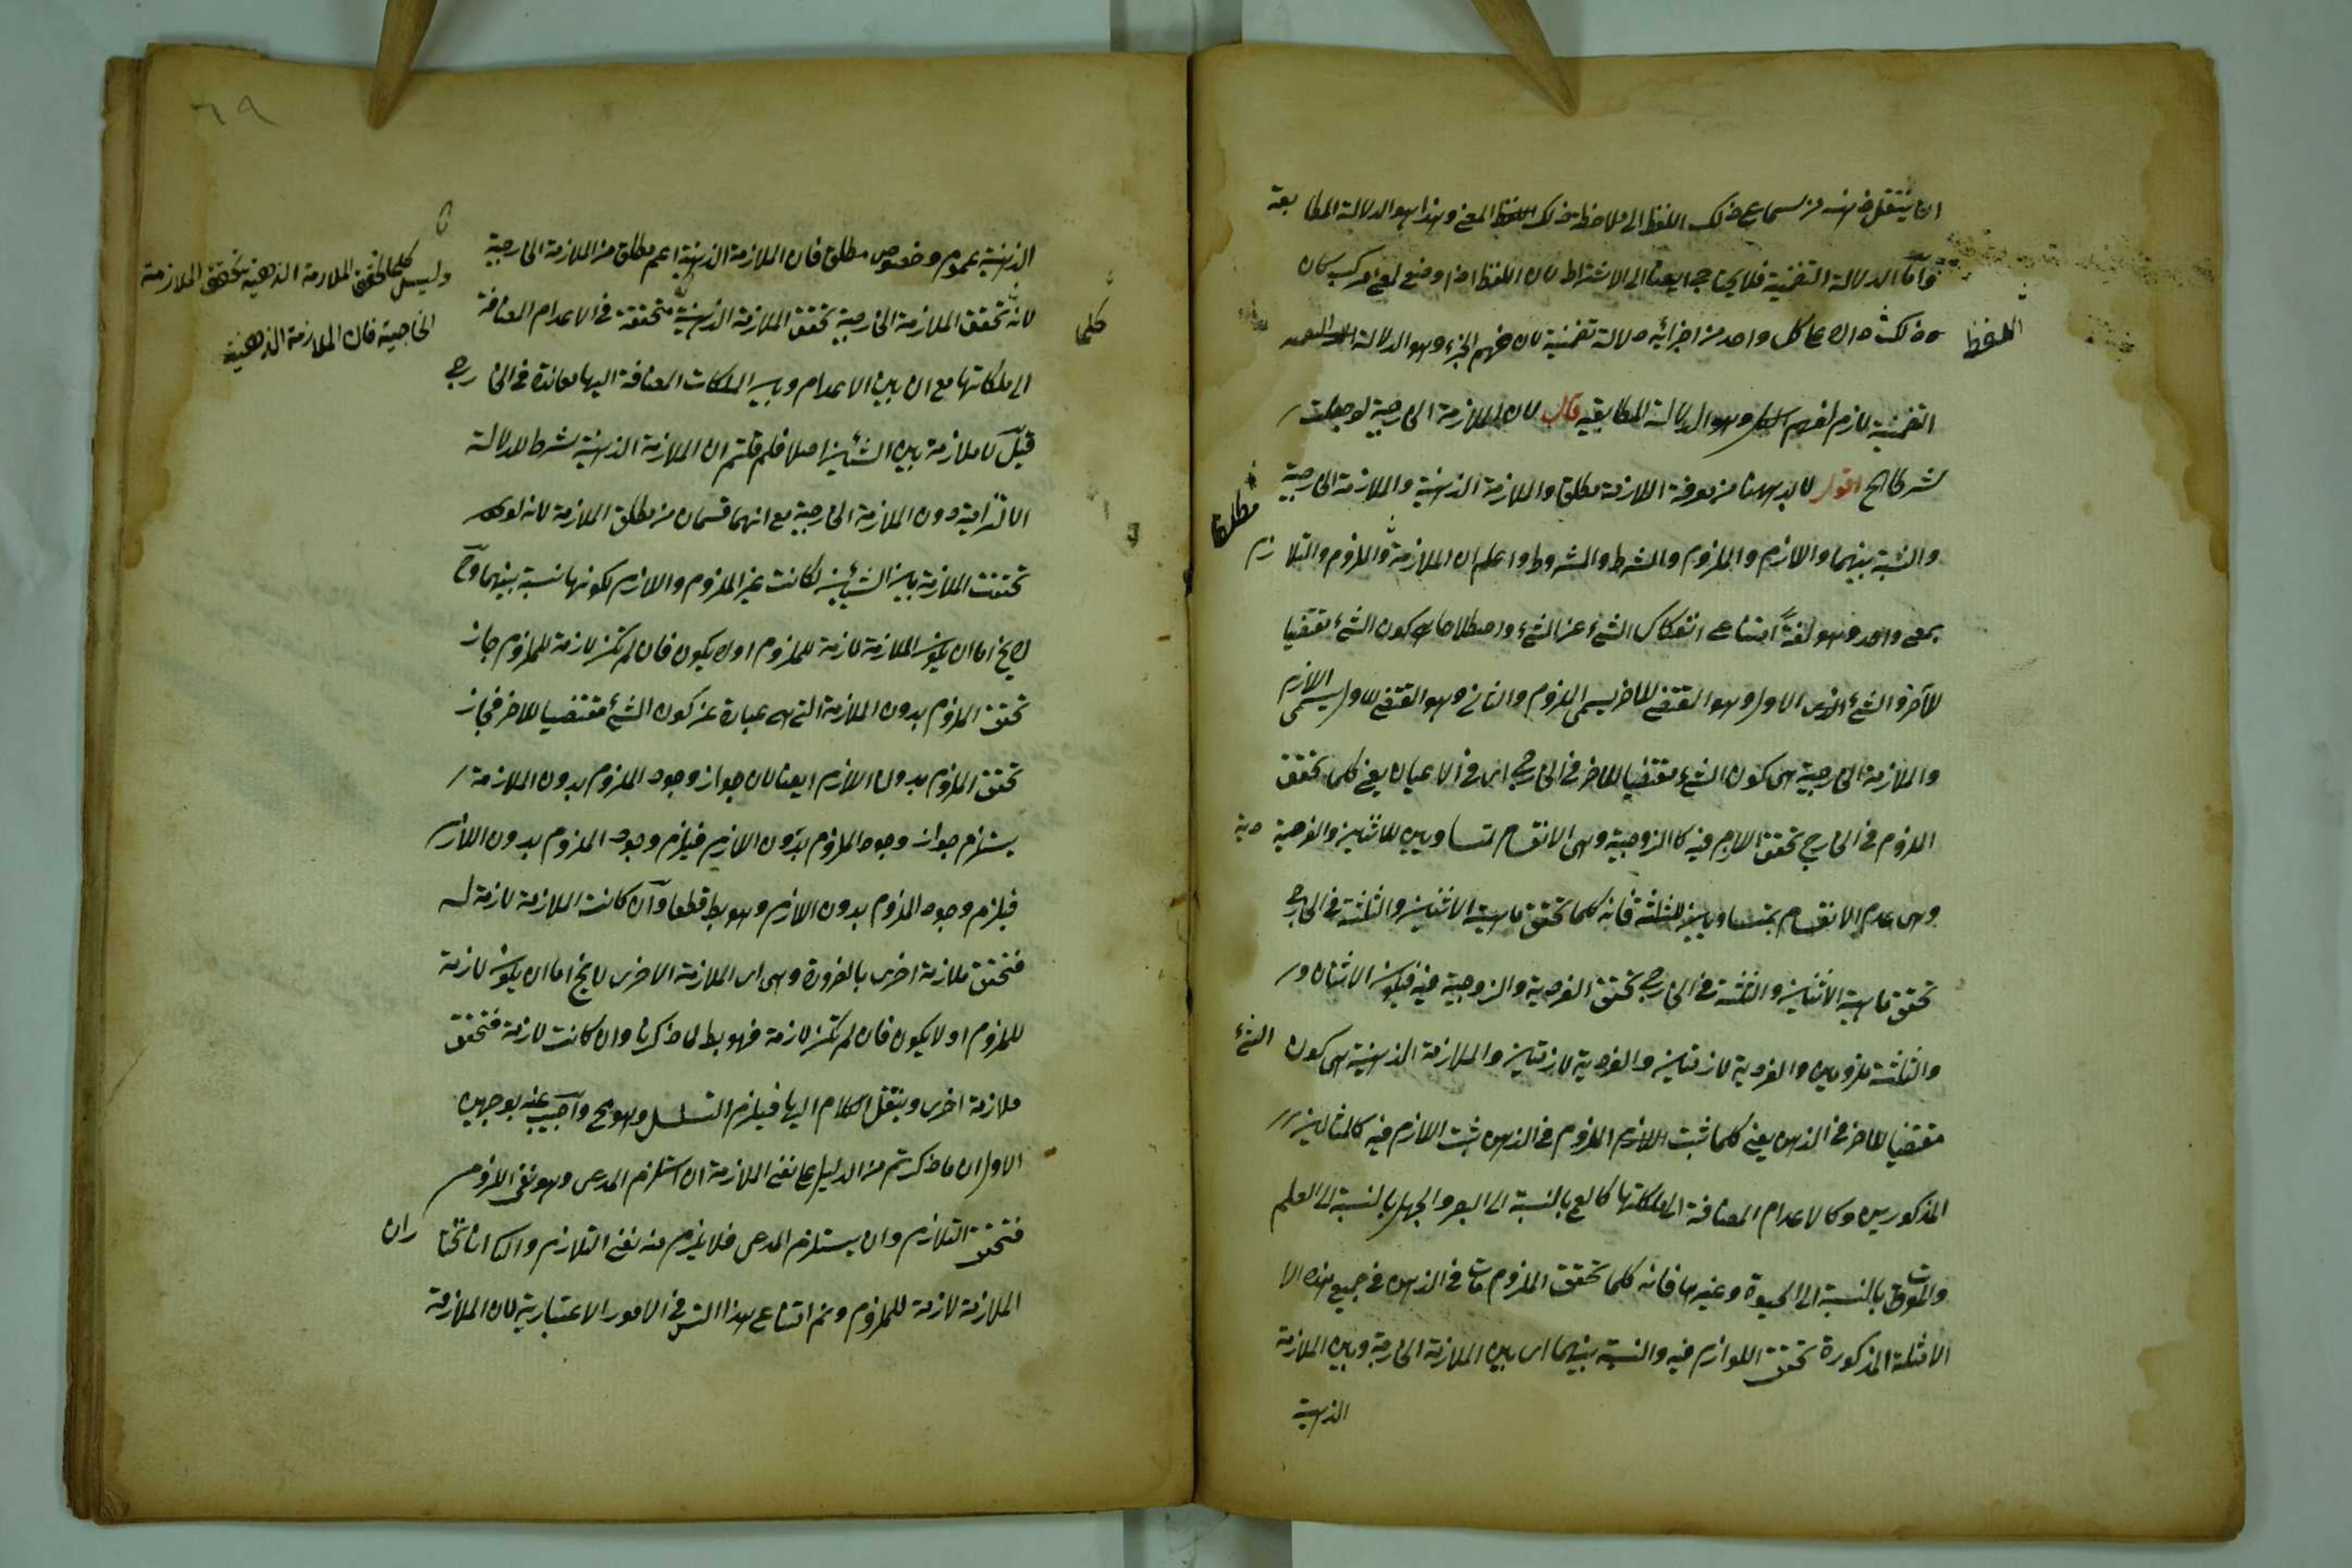 ان ينتقل ذهنه من سماع ذلك اللفظ الى ملاحظة ذلك المعنى وهذا هو الدلالة المطابقة
وأما الدلالة التضمنية فلا يحتاج ايضا الى الاشتراط لان اللفظ اذا وضع لمعنى مركب كان
اللفظ
ذلك دالا على كل واحد من اجزائه دلالة تضمنية لان فهم الجزء وهو الدلالة
التضمنية لازم لفهم الكل وهو الدلالة المطابقية قال لان الملازمة الخارجية لو جعلت
شرطا الخ اقول لابد ههنا من معرفة الملازمة مطلقا والملازمة الذهنية والملازمة الخارجية
مطلقا
والنسبة بينهما واللازم والملزوم والشرط والمشروط واعلم ان الملازمة والملزوم والتلازم
بمعنى واحد وهو لغةً امتناع انفكاك الشئ عن الشئ واصطلاحا كون الشئ مقتضيا
للآخر والشئ الاول وهو المقتضى للآخر يسمى الملزوم والثانى وهو المقتضى للاول يسمى اللازم
والملازمة الخارجية هى كون الشئ مقتضيا للآخر فى الخارج اى فى الاعيان يعنى كلما تحقق
الملزوم فى الخارج تحقق اللازم فيه كالزوجية وهى الانقسام بمتساويين للاثنين والفردية
وهى عدم الانقسام بمتساويين للثلثة فانه كلما تحقق ماهية الاثنين والثلثة فى الخارج
تحقق ماهية الاثنين والثلثة فى الخارج تحقق الفردية والزوجية فيه فيكون الاثنان و
والثلثة ملزومين والفردية لازمتين والفردية لازمتين والملازمة الذهنية هى كون الشئ
مقتضيا للآخر فى الذهن يعنى كلما ثبت الملزوم فى الذهن ثبت اللازم فيه كالمثالين
المذكورين وكالاعدام المضافة الى ملكاتها كالعمى بالنسبة الى البصر والجهل بالنسبة الى العلم
والموت بالنسبة الى الحيوة وغيرها فانه كلما تحقق الملزومات فى الذهن فى جميع هذه الا
الامثلة المذكورة تحقق اللوازم فيه والنسبة بينهما اى بين الملازمة الخارجية وبين الملازمة
الذهنية
الذهنية عموم وخصوص مطلق فان الملازمة الذهنية اعم مطلق من الملازمة الخارجية
وليس كلما تحقق الملازمة الذهنية تحقق الملازمة
الخارجية فان الملازمة الذهنية
كلما
لانه تحقق الملازمة الخارجية تحقق الملازمة الذهنية متحققة فى الاعدام المضافة
الى ملكاتها مع ان بين الاعدام وبين الملكات المضافة اليها معاندة فى الخارج
قيل لا ملازمة بين الشيئين اصلا فلم قلتم ان الملازمة الذهنية شرط للدلالة
الالتزامية دون الملازمة الخارجية مع انهما قسمان من مطلق الملازمة لانه لو
تحققت الملازمة بين الشيئين لكانت غير الملزوم واللازم لكونها نسبة بينهما وح
لا يخ اما ان يكون الملازمة لازمة للملزوم اولا يكون فان لم تكن لازمة للملزوم جاز
تحقق الملزوم بدون الملازمة التى هى عبارة عن كون الشئ مقتضيا للآخر فجاز
تحقق الملزوم بدون اللازم ايضا لان جواز وجود الملزوم بدون الملازمة
يستلزم جواز وجود الملزوم بدون اللازم فيلزم وجود الملزوم بدون اللازم
فيلزم وجود الملزوم بدون اللازم وهو بط قطعا وآن كانت الملازمة لازمة له
فتحقق ملازمة اخرى بالضرورة وهى اى الملازمة الاخرى لا يخ اما ان يكون لازمة
للملزوم او لا يكون فان لم تكن لازمة فهو بط لما ذكرنا وان كانت لازمة فتحقق
ملازمة اخرى وينتقل الكلام اليها فيلزم التسلسل وهو مح وآجيب عنه بوجهين
الاول ان ما ذكرتم من الدليل على نفى الملازمة ان استلزم المدعى وهو نفى اللزوم
فتحقق التلازم وان يستلزم المدعى فلا يلزم منه نفى التلازم والثانى انا نختار ان
الملازمة لازمة للملزوم ونم امتناع هذا التس فى الامور الاعتبارية لان الملازمة
٦٩